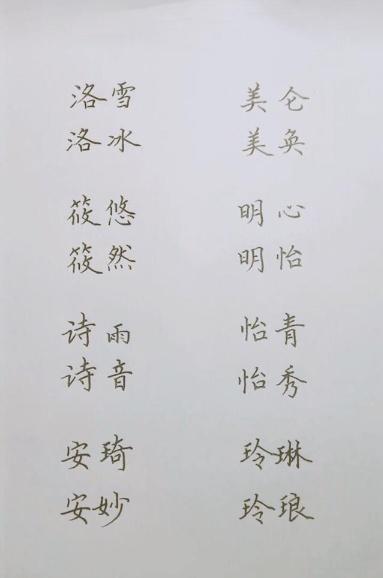 洛雪 美仑
洛冰 美奂
筱悠 明心
筱然 明怡
诗雨 怡青
诗音 怡秀
安琦 玲琳
安妙 玲琅